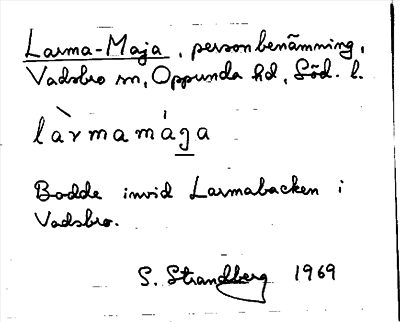 Larma-Maja, personbenämning,
Vadsbro sn, Oppunda hd, Söd. l.
làrmamága
Bodde invid Larmabacken i
Vadsbro.
S. Strandberg 1969